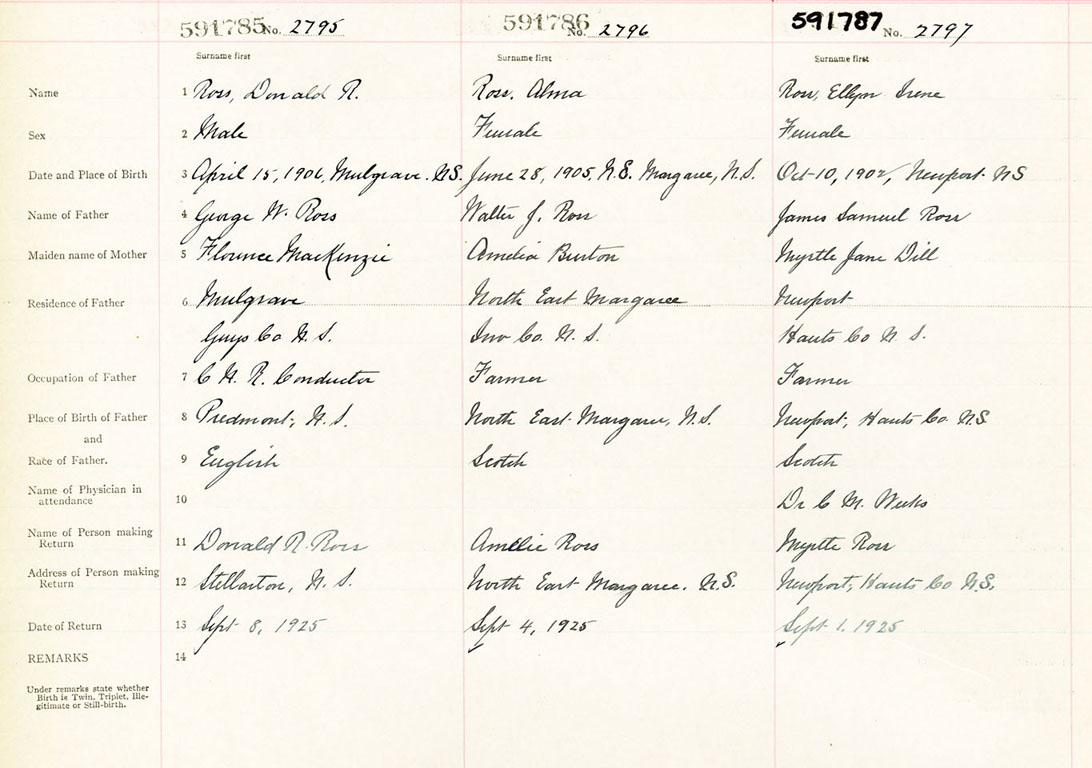 591785 No. 2795 591786 No. 2796 591787 No. 2797
Surname first Surname first Surname first
Name 1 Ross, Donald R. Ross, Alma Ross, Ellyn Irene
Sex 2 Male Female Female
Date and Place of Birth 3 April 15, 1906, Mulgrave. N.S. June 28, 1905, N.E. Margaree, N.S. Oct 10, Newport N.S
Name of Father 4 George W. Ross Walter J. Ross James Samuel Ross
Maiden name of Mother 5 Florence MacKenzie Amelia Burton Myrtle Jane Dill
Residence of Father 6 Mulgrave North East Margaree Newport
Guys Co N. S. Inv Co. N. S. Hants Co N. S.
Occupation of Father 7 C N. R. Conductor Farmer Farmer
Place of Birth of Father 8 Piedmont, N. S. North East Margaree, N.S. Newport, Hants Co. N.S
and
Race of Father. 9 English Scotch Scotch
Name of Physician in
attendance 10 Dr C M. Weeks
Name of Person making
Return 11 Donald R. Ross Amelie Ross Myrtle Ross
Address of Person making
Return 12 Stellarton, N. S. North East Margaree. N.S. Newport, Hants Co N.S.
Date of Return 13 Sept 8, 1925 Sept 4, 1925 Sept 1. 1925
REMARKS 14
Under remarks state whether
Birth is Twin, Triplet, Ille-
gitimate or Still-birth.